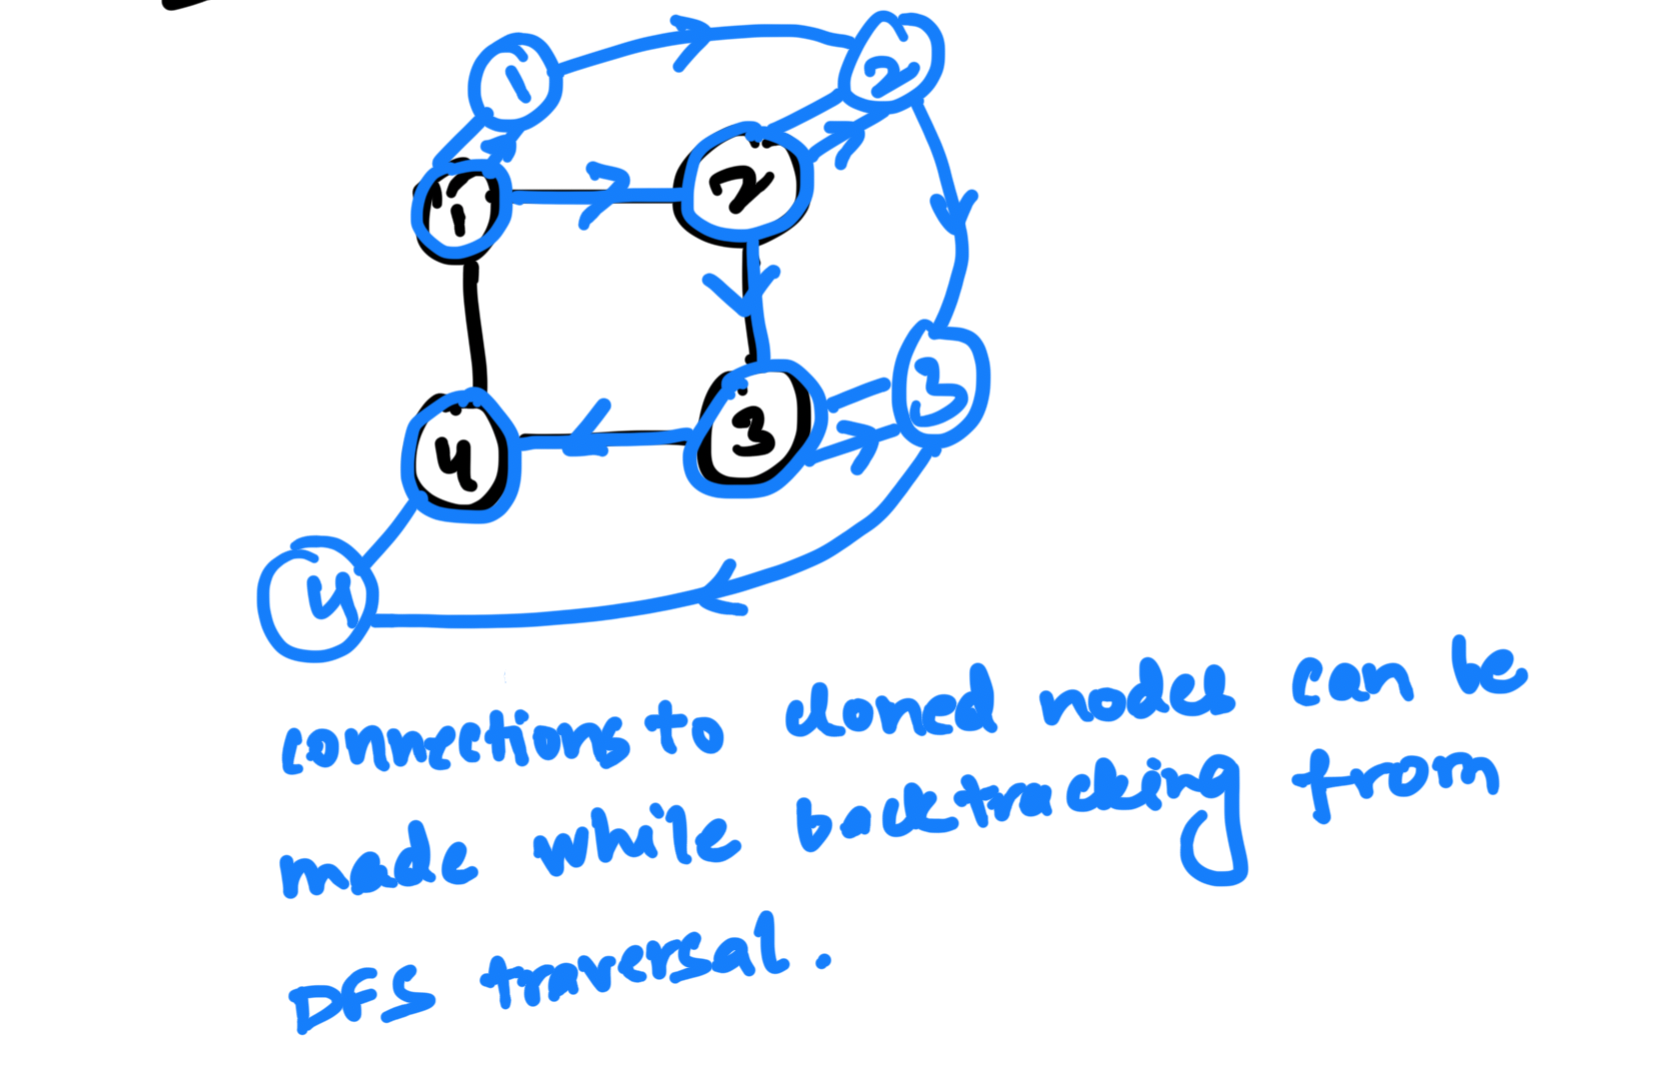 1 2
1 2
3
4 3
4
connections to cloned nodes can be
made while backtracking from
DFS traversal.